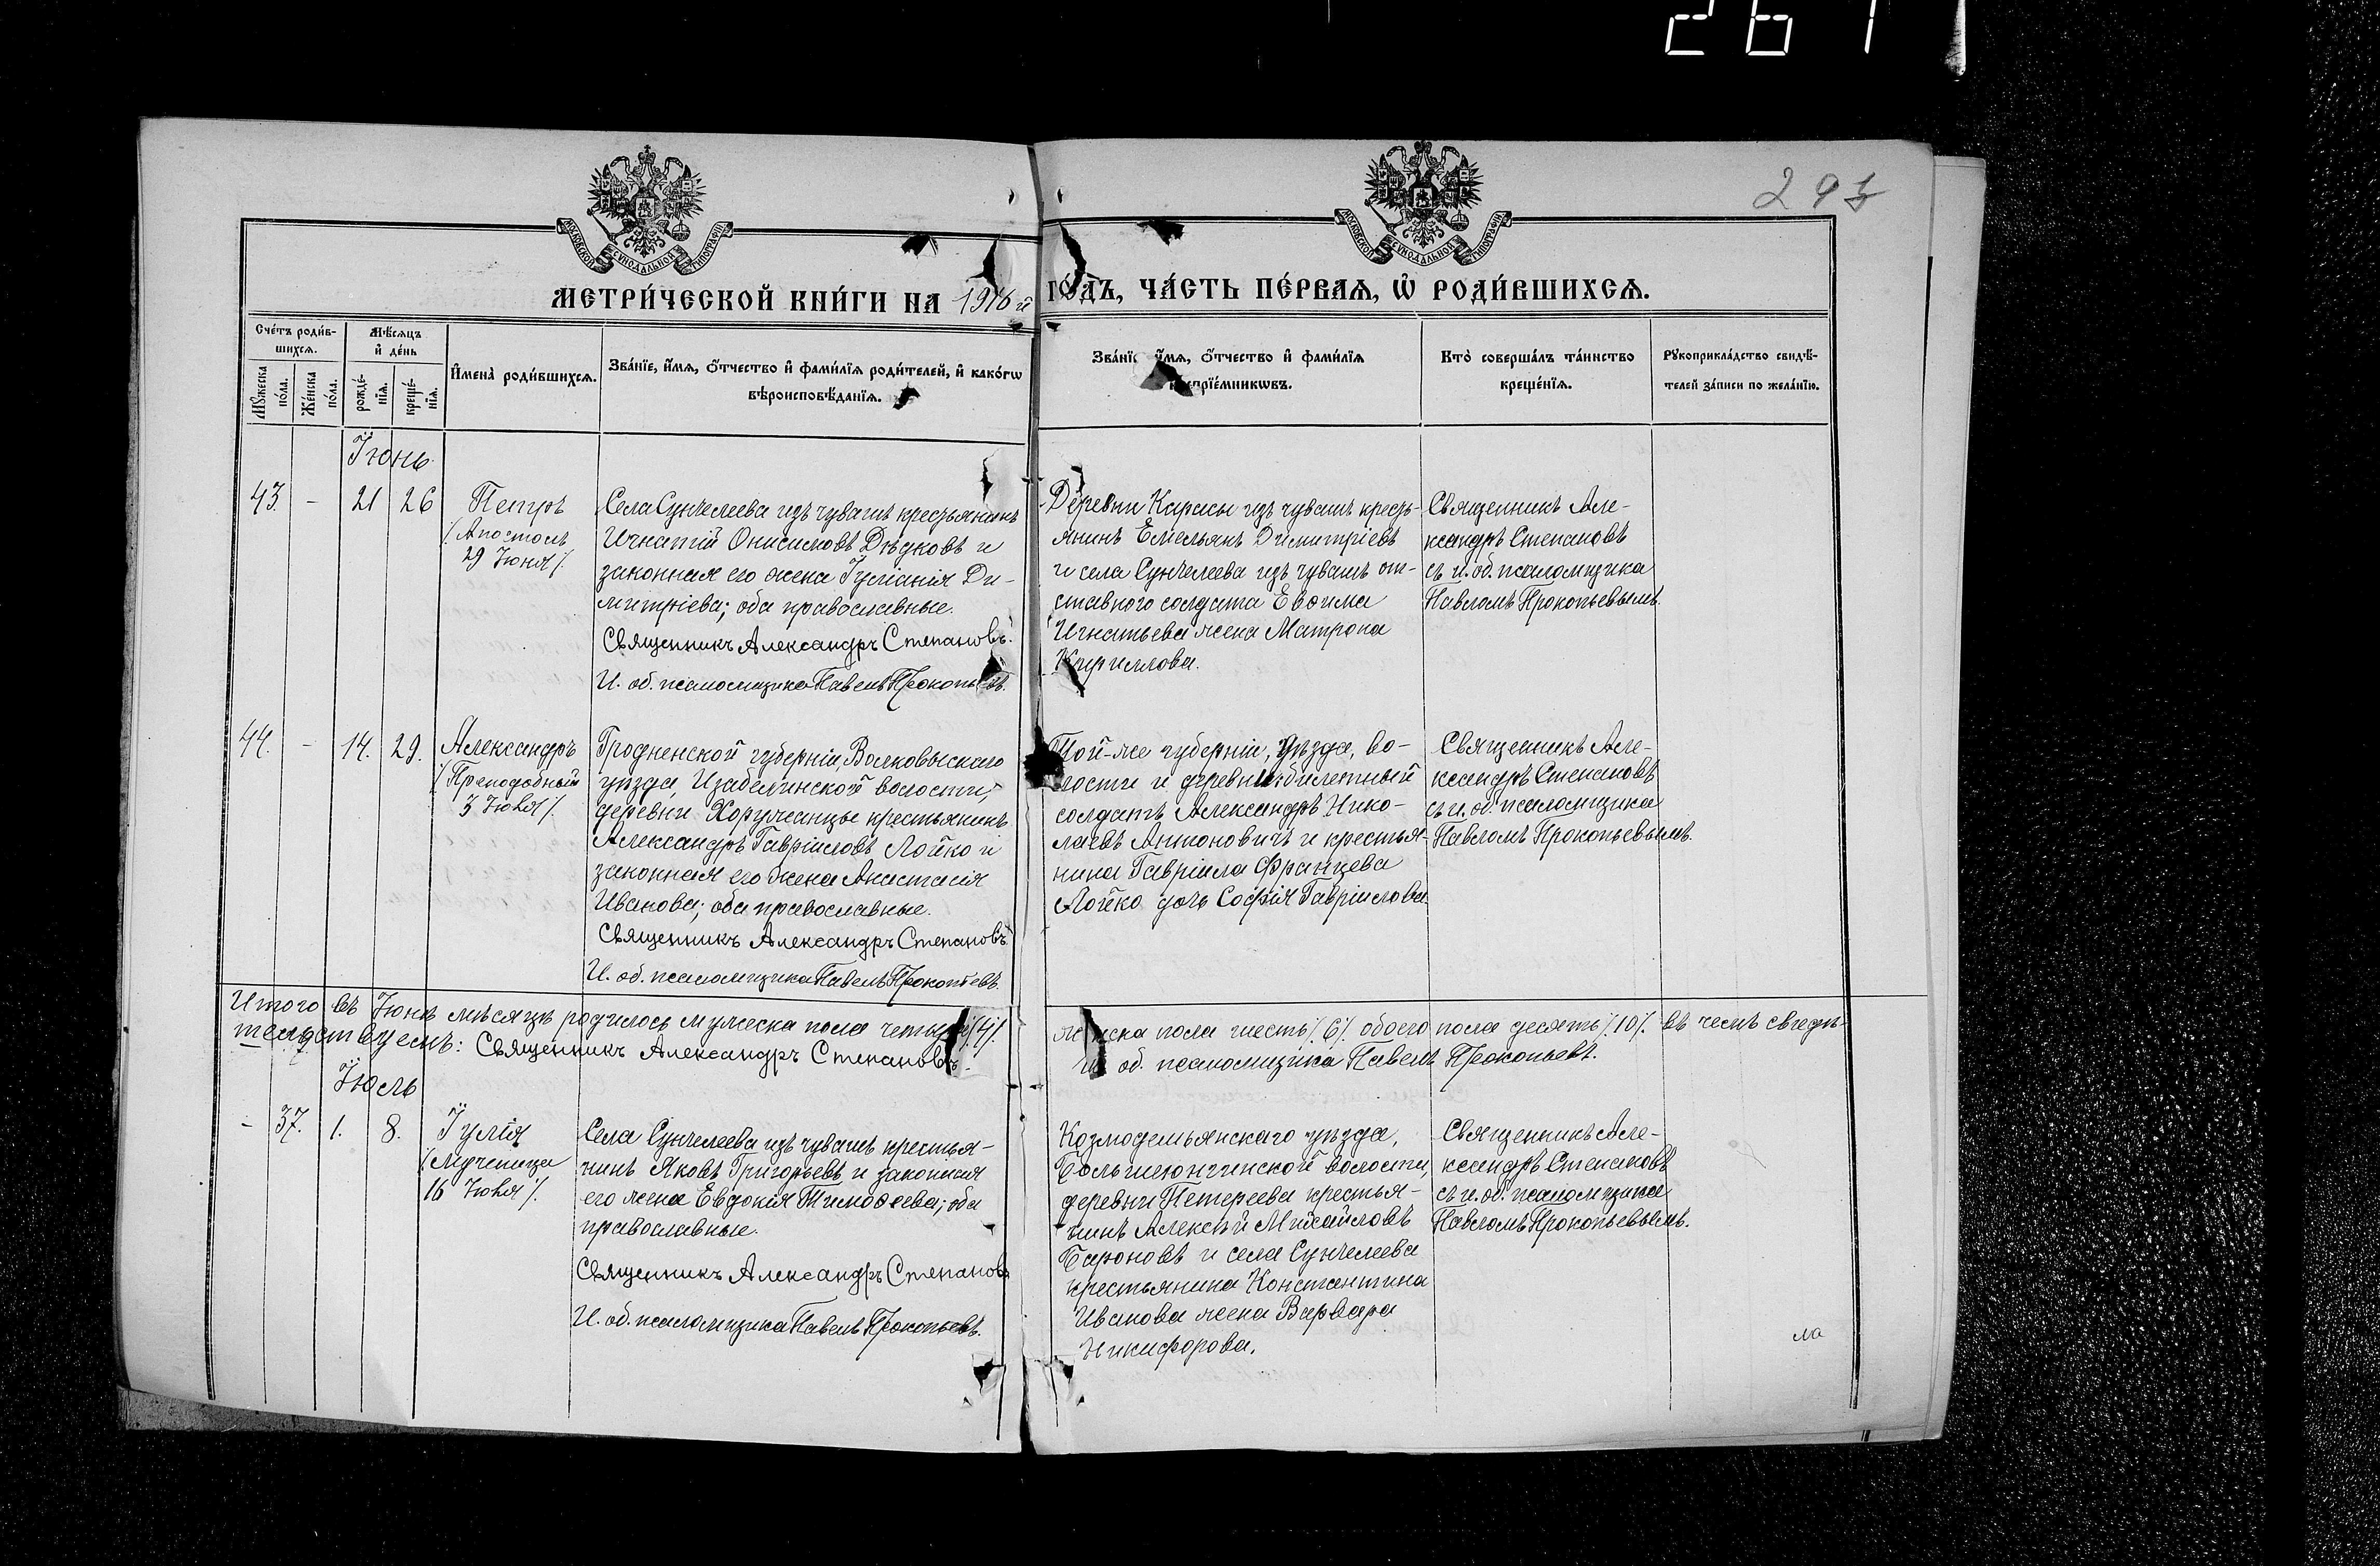 261
293
МОСКОВСКОЙ СѴНОДАЛЬНОЙ ТИПОГРАФІИ
МОСКОВСКОЙ СѴНОДАЛЬНОЙ ТИПОГРАФІИ
МЕТРИ́ЧЕСКОЙ КНИ́ГИ НА 1916 й ГО́ДЪ, ЧА́СТЬ ПЕ́РВАѦ, Ѡ҆ РОДИ́ВШИХСѦ.
Сче́тъ роди́в-
шихсѧ.
Мꙋ́жеска по́ла.
Же́нска по́ла.
Мѣ́сѧцъ
и҆ де́нь
рожде́-
нїѧ.
креще́-
нїѧ.
И҆мена̀ роди́вшихсѧ.
Зва́нїе, и҆́мѧ, ѻ҆́тчество и҆ фами́лїѧ роди́телей, и҆ како́гѡ
вѣроисповѣ́данїѧ.
Зва́нїе и҆́мѧ, ѻ҆́тчество и҆ фами́лїѧ
воспрїе́мникѡвъ.
Кто̀ соверша́лъ та́инство
креще́нїѧ.
Рꙋкоприкла́дство свидѣ́-
телей за́писи по жела́нїю.
Іюнь
43. - 21 26
Петръ
/Апостолъ
29 Іюня/.
Села Сунчелеева изъ чувашъ крестьянинъ
Игнатій Онисимовъ Дѣдковъ и
законная его жена Іуліанія Ди-
митріева; оба православные.
Священникъ Александръ Степановъ.
И. об. псаломщика Павелъ Прокопьевъ.
Деревни Карасы изъ чувашъ кресть-
янинъ Емельянъ Димитріевъ
и села Сунчелеева изъ чувашъ от-
ставного солдата Евѳима
Игнатьева жена Матрона
Кириллова.
Священникъ Але-
ксандръ Степановъ
съ и. об. псаломщика
Павломъ Прокопьевымъ.
44. - 14. 29.
Александръ
/Преподобный
3 Іюля/.
Гродненской губерніи, Волковыскаго
уѣзда, Изабелинской волости,
деревни Хоружанцы крестьянинъ
Александръ Гавріиловъ Лойко и
законная его жена Анастасія
Иванова; оба православные.
Священникъ Александръ Степановъ.
И. об. псаломщика Павелъ Прокопьевъ.
Той-же губерніи, уѣзда, во-
лости и деревни билетный
солдатъ Александръ Нико-
лаевъ Антоновичъ и крестья-
нина Гавріила Францева
Лойко дочь Софія Гавріилова
Священникъ Але-
ксандръ Степановъ
съ и. об. псаломщика
Павломъ Прокопьевымъ.
Итого въ Іюнѣ мѣсяцѣ родилось мужеска пола четыре /4/. женска пола шесть /6/. обоего пола десять /10/. въ чемъ свидѣ-
тельствуемъ: Священникъ Александръ Степановъ. И об. псаломщика Павелъ Прокопьевъ.
Іюль
- 37. 1. 8.
Іулія
/Мученица
16 Іюля/.
Села Сунчелеева изъ чувашъ крестья-
нинъ Яковъ Григорьевъ и законная
его жена Евдокія Тимоѳеева; оба
православные.
Священникъ Александръ Степановъ
И. об. псаломщика Павелъ Прокопьевъ.
Козмодемьянскаго уѣзда,
Большеюнгинской волости,
деревни Петереева крестья-
нинъ Алексѣй Михайловъ
Бароновъ и села Сунчелеева
крестьянина Константина
Иванова жена Варвара
Никифорова.
Священникъ Але-
ксандръ Степановъ
съ и. об. псаломщика
Павломъ Прокопьевымъ.
ла